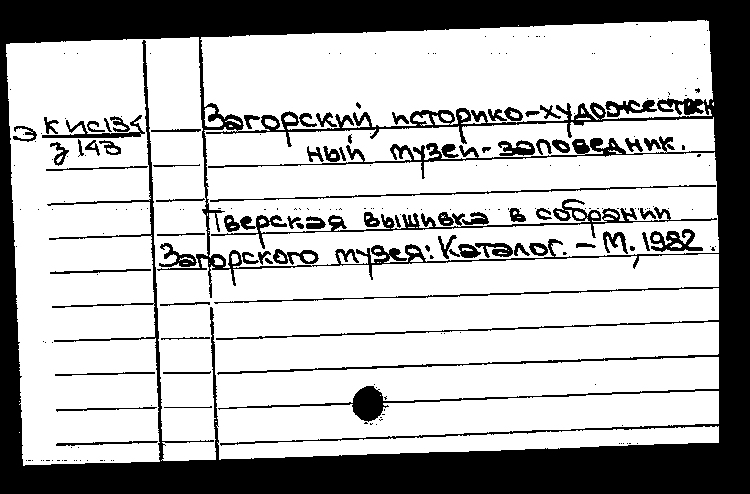 Э К ИС134
З 143
Загорский, историко-художествен
ный музей-заповедник.
Тверская вышивка в собрании
Загорского музея: Каталог. - М., 1982.